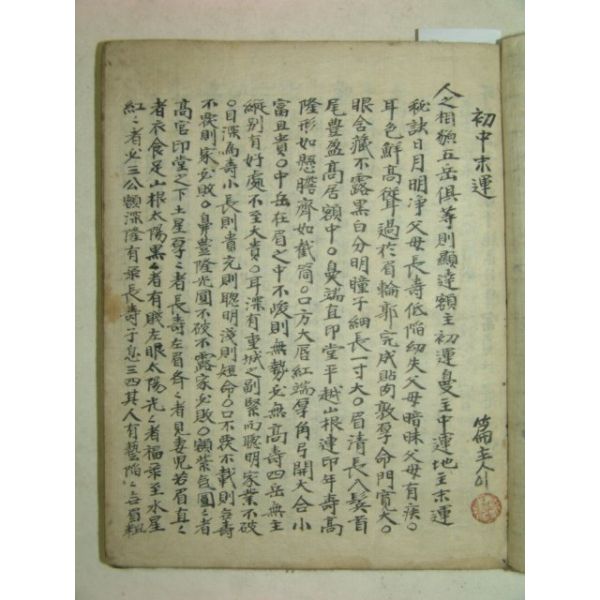 初中末運
人之相貌五岳俱等則顯達額主初運鼻主中運地主末運
秘訣日月明淨父母長壽低陷幼失父母暗昧父母有疾○
耳色鮮高聳過於眉輪郭完成貼肉敦厚命門寬大○
眼含藏不露黑白分明瞳子細長一寸大○眉清長入鬢首
尾豊盈高居額中○鼻端直印堂平越山根連印年壽高
隆形如懸膽齊如截筒○口方大唇紅端厚角弓開大合小
富且貴○中岳在眉之中不峻則無勢必無高壽四岳無主
縱別有好處不至大貴○耳深有重城之副緊而聰明家業不破
○目深為壽小長則貴光則聰明淺則短命○口不畏不載則無壽
不畏則家必敗○鼻豊隆光圓不破不露家必敗○額紫氣圓〻者
高官印堂之下土星厚〻者長壽左眉奇〻者見妻児右眉直〻
者衣食足山根太陽黑〻者有賊左眼太陽光〻者福氣至水星
紅〻者必三公額深隆有承長壽子息三四其人有藝陷〻無眉粗
主人